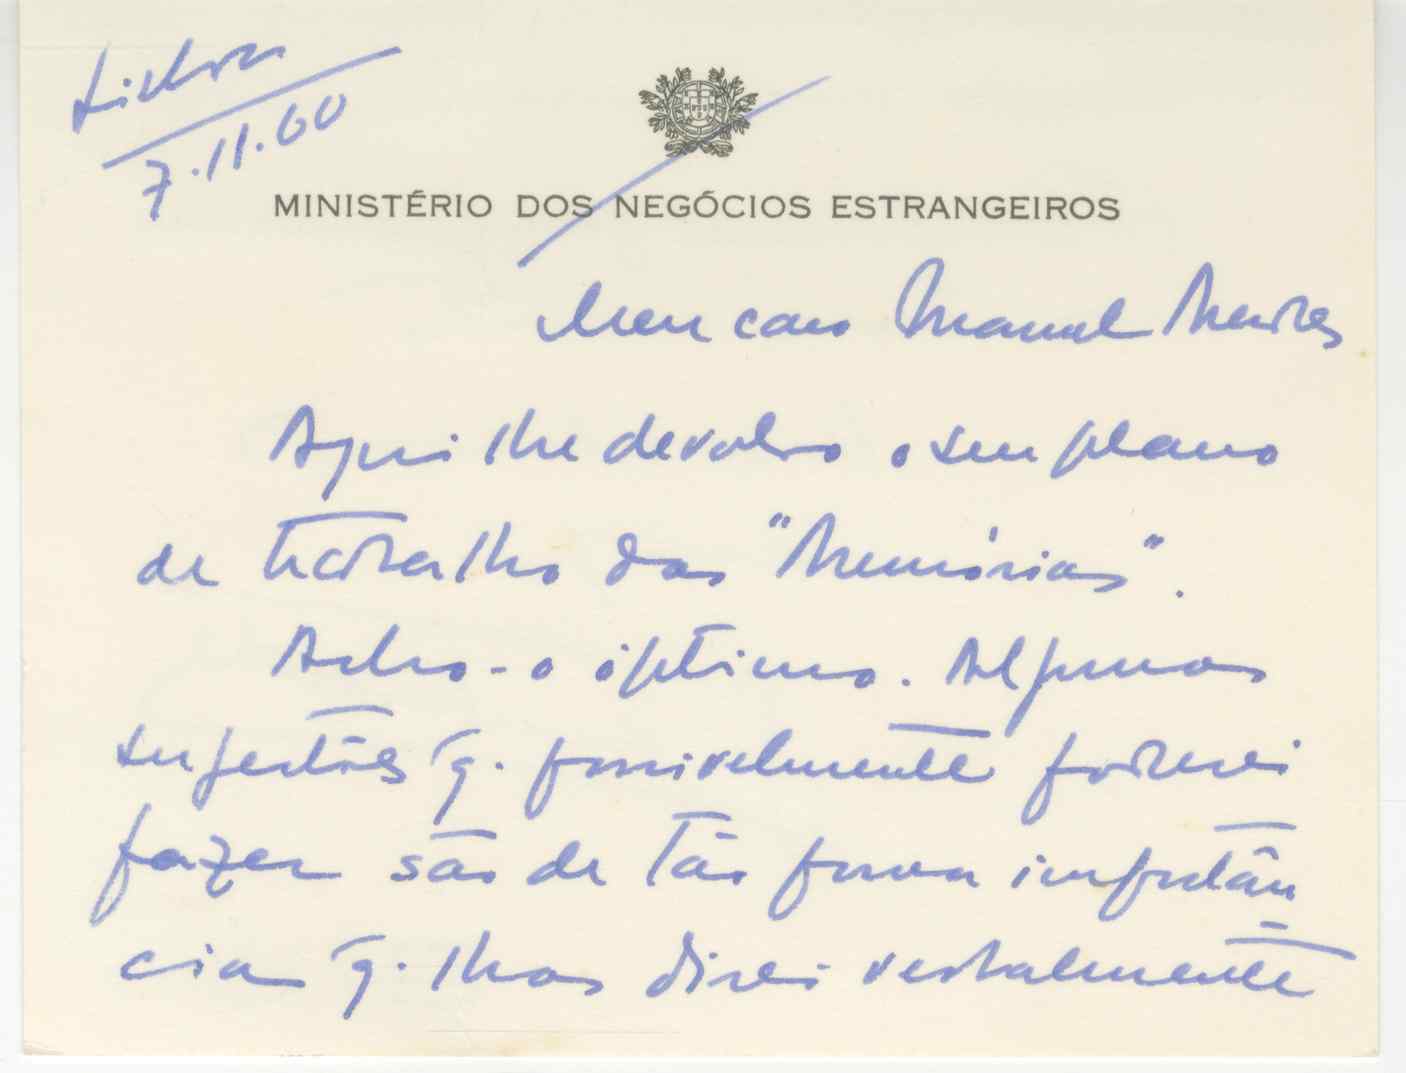 Lisboa
7.11.60
MINISTÉRIO DOS NEGÓCIOS ESTRANGEIROS
Meu caro Manuel Mendes
Aqui lhe devolvo o seu plano
de trabalho das "Memórias".
Acho-o óptimo. Algumas
sugestões q. possivelmente poderei
fazer são de tão pouca importân
cia q. lhas direi verbalmente